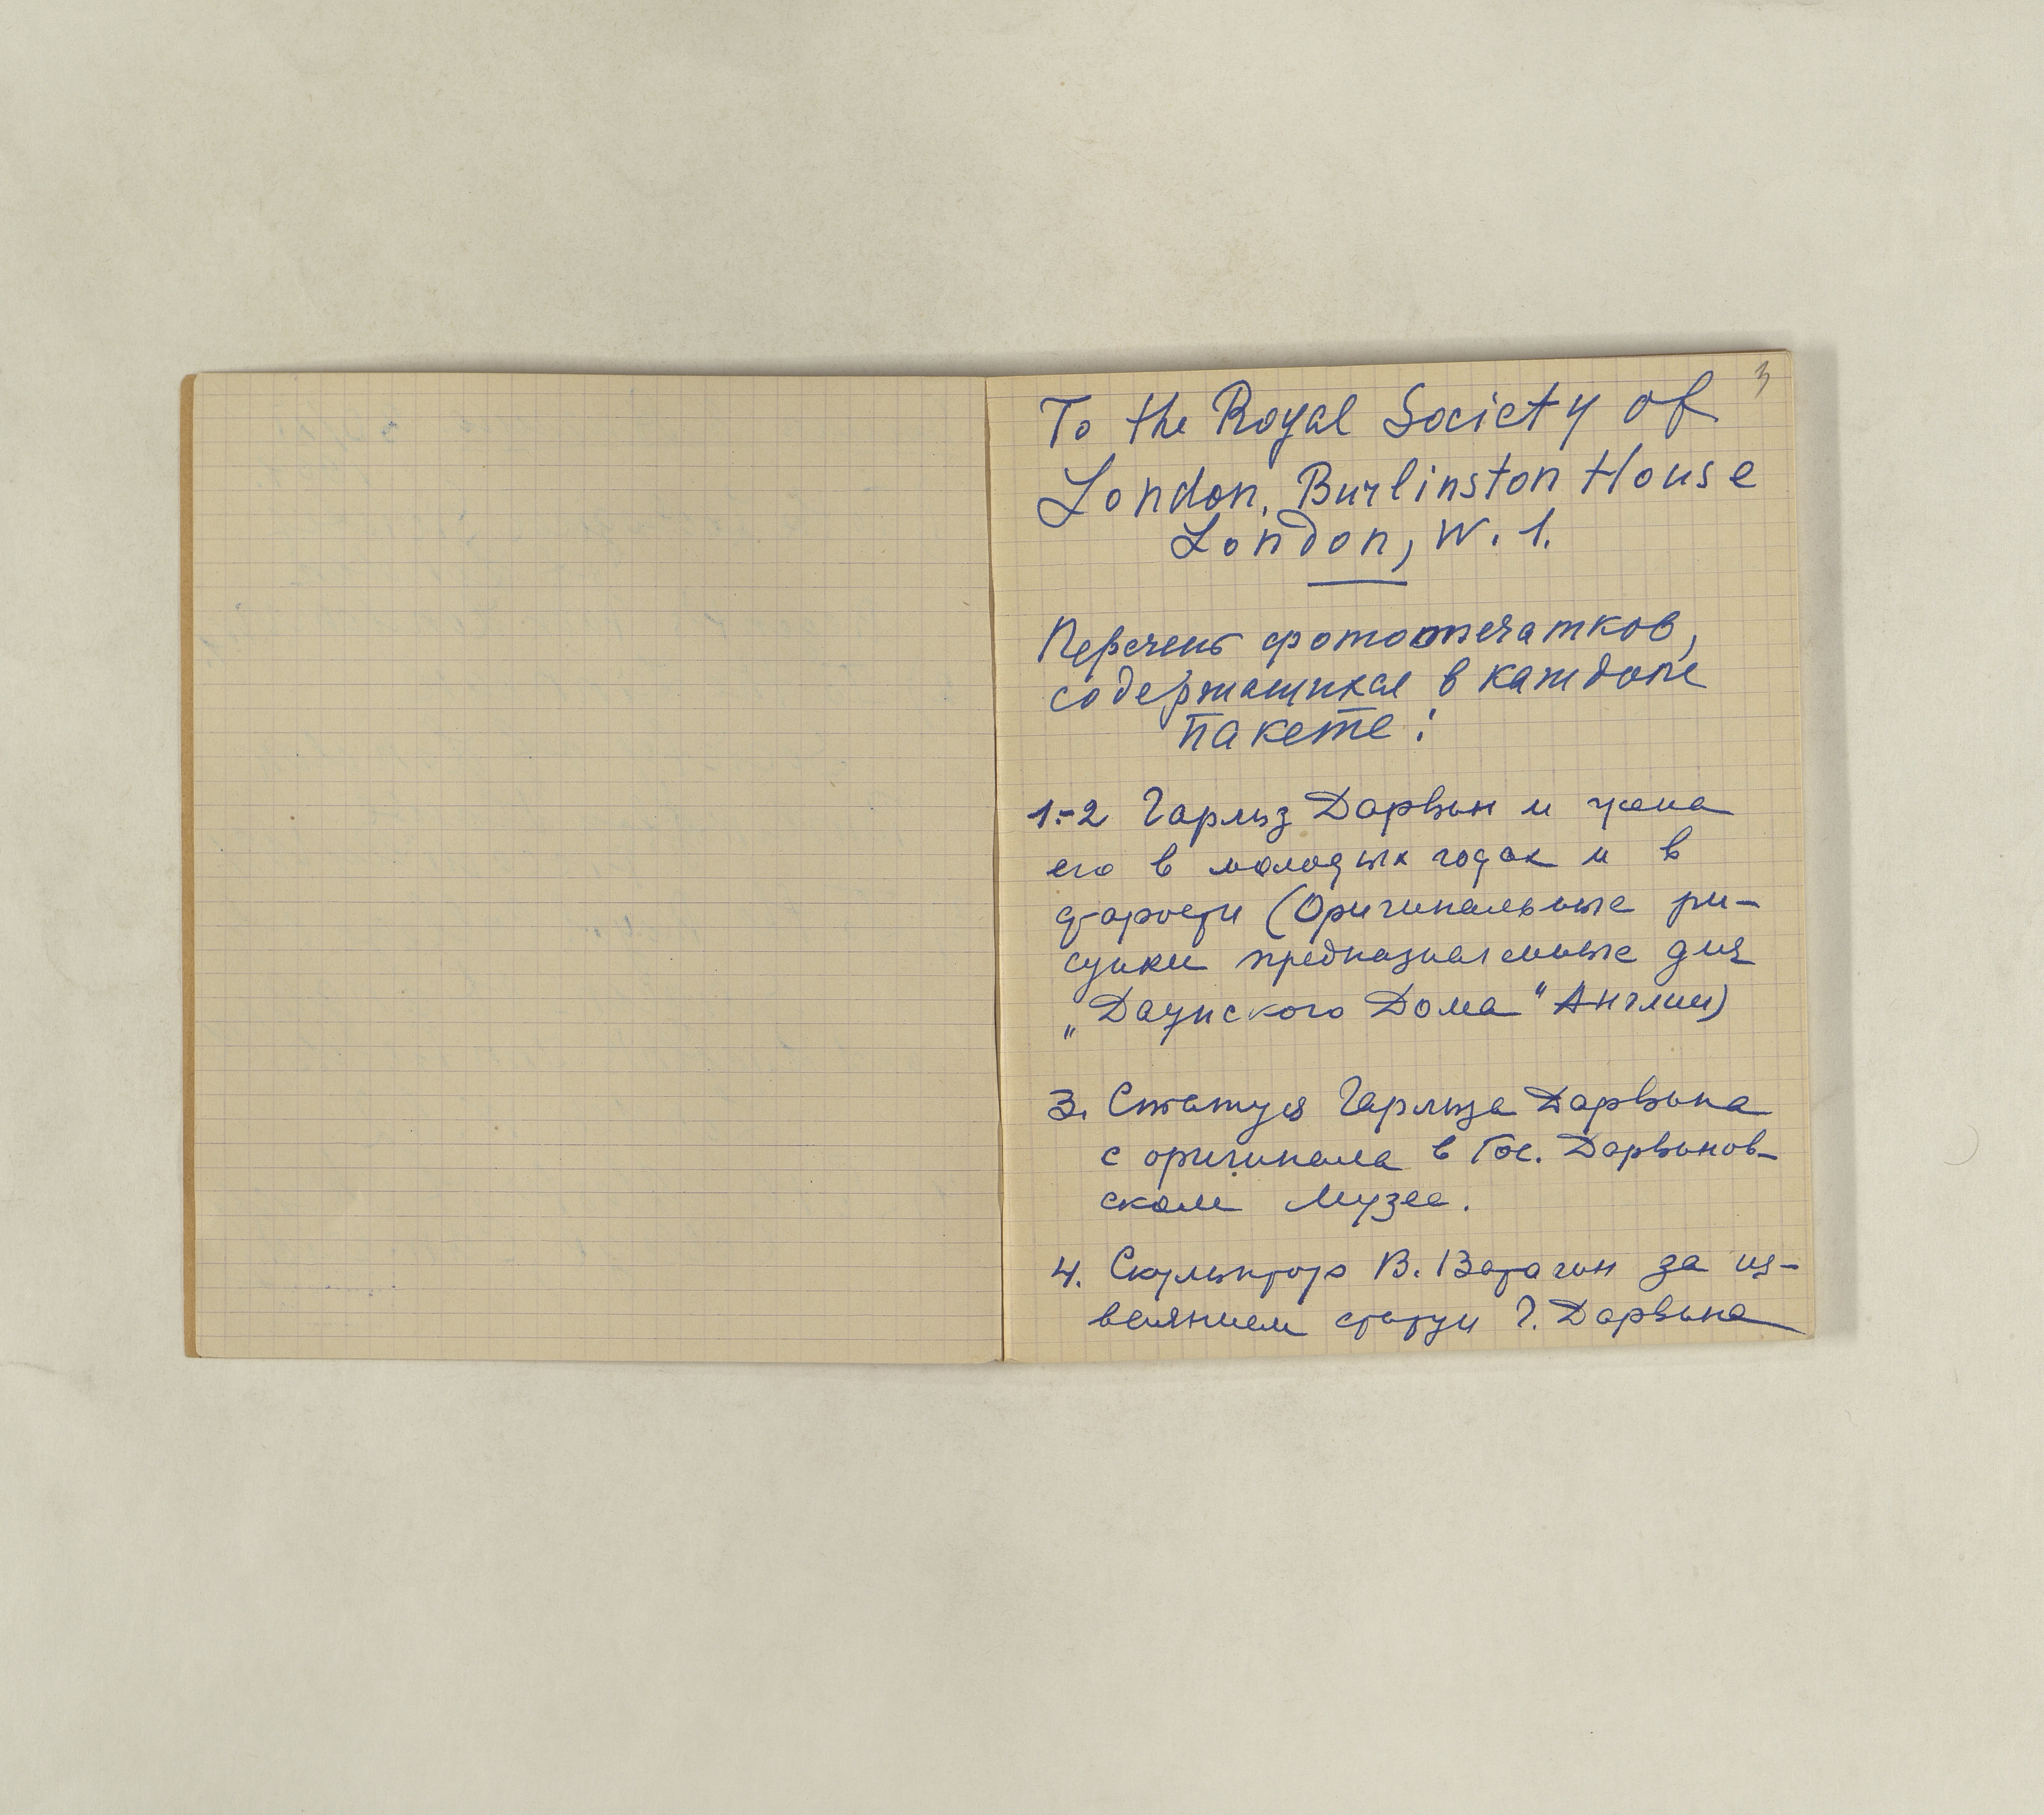 3
To the Royal Society of
London, Burlinston House
London, W. 1.
Перечень фотоотпечатков,
содержащихся в каждом
пакете:
1-2 Чарльз Дарвин и жена
его в молодых годах и в
старости (Оригинальные ри-
сунки предназначенные для
„Даунского Дома" Англии)
3. Статуя Чарльза Дарвина
с оригинала в Гос. Дарвинов-
ском Музее.
4. Скульптор В. Ватагин за из-
ваянием статуи Ч. Дарвина